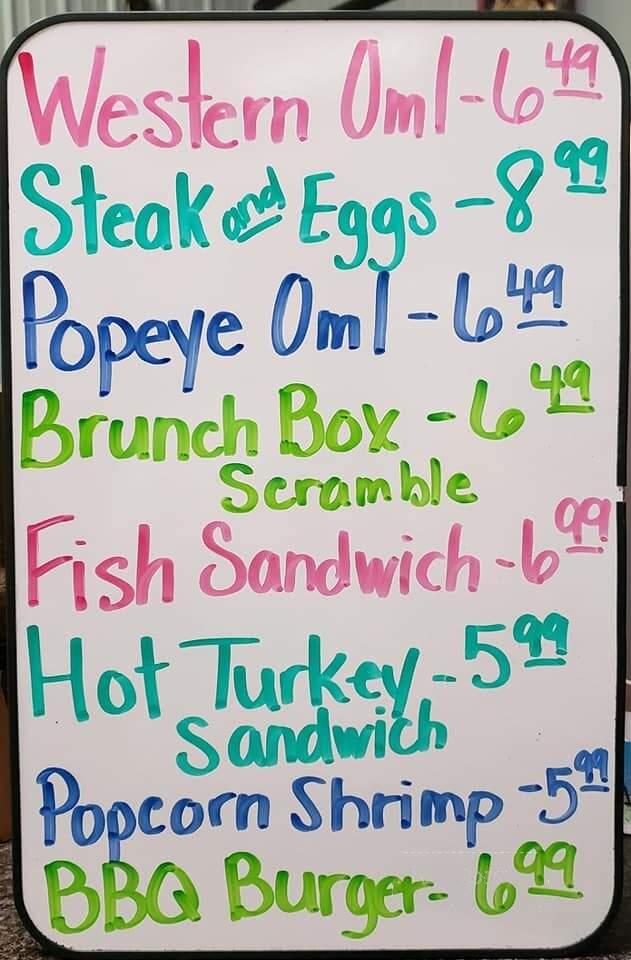 Western Oml - 6 49
Steak and Eggs - 8 99
Popeye Oml - 6 49
Brunch Box - 6 49
Scramble
Fish Sandwich - 6 99
Hot Turkey - 5 99
Sandwich
Popcorn Shrimp - 5 99
BBQ Burger - 6 99